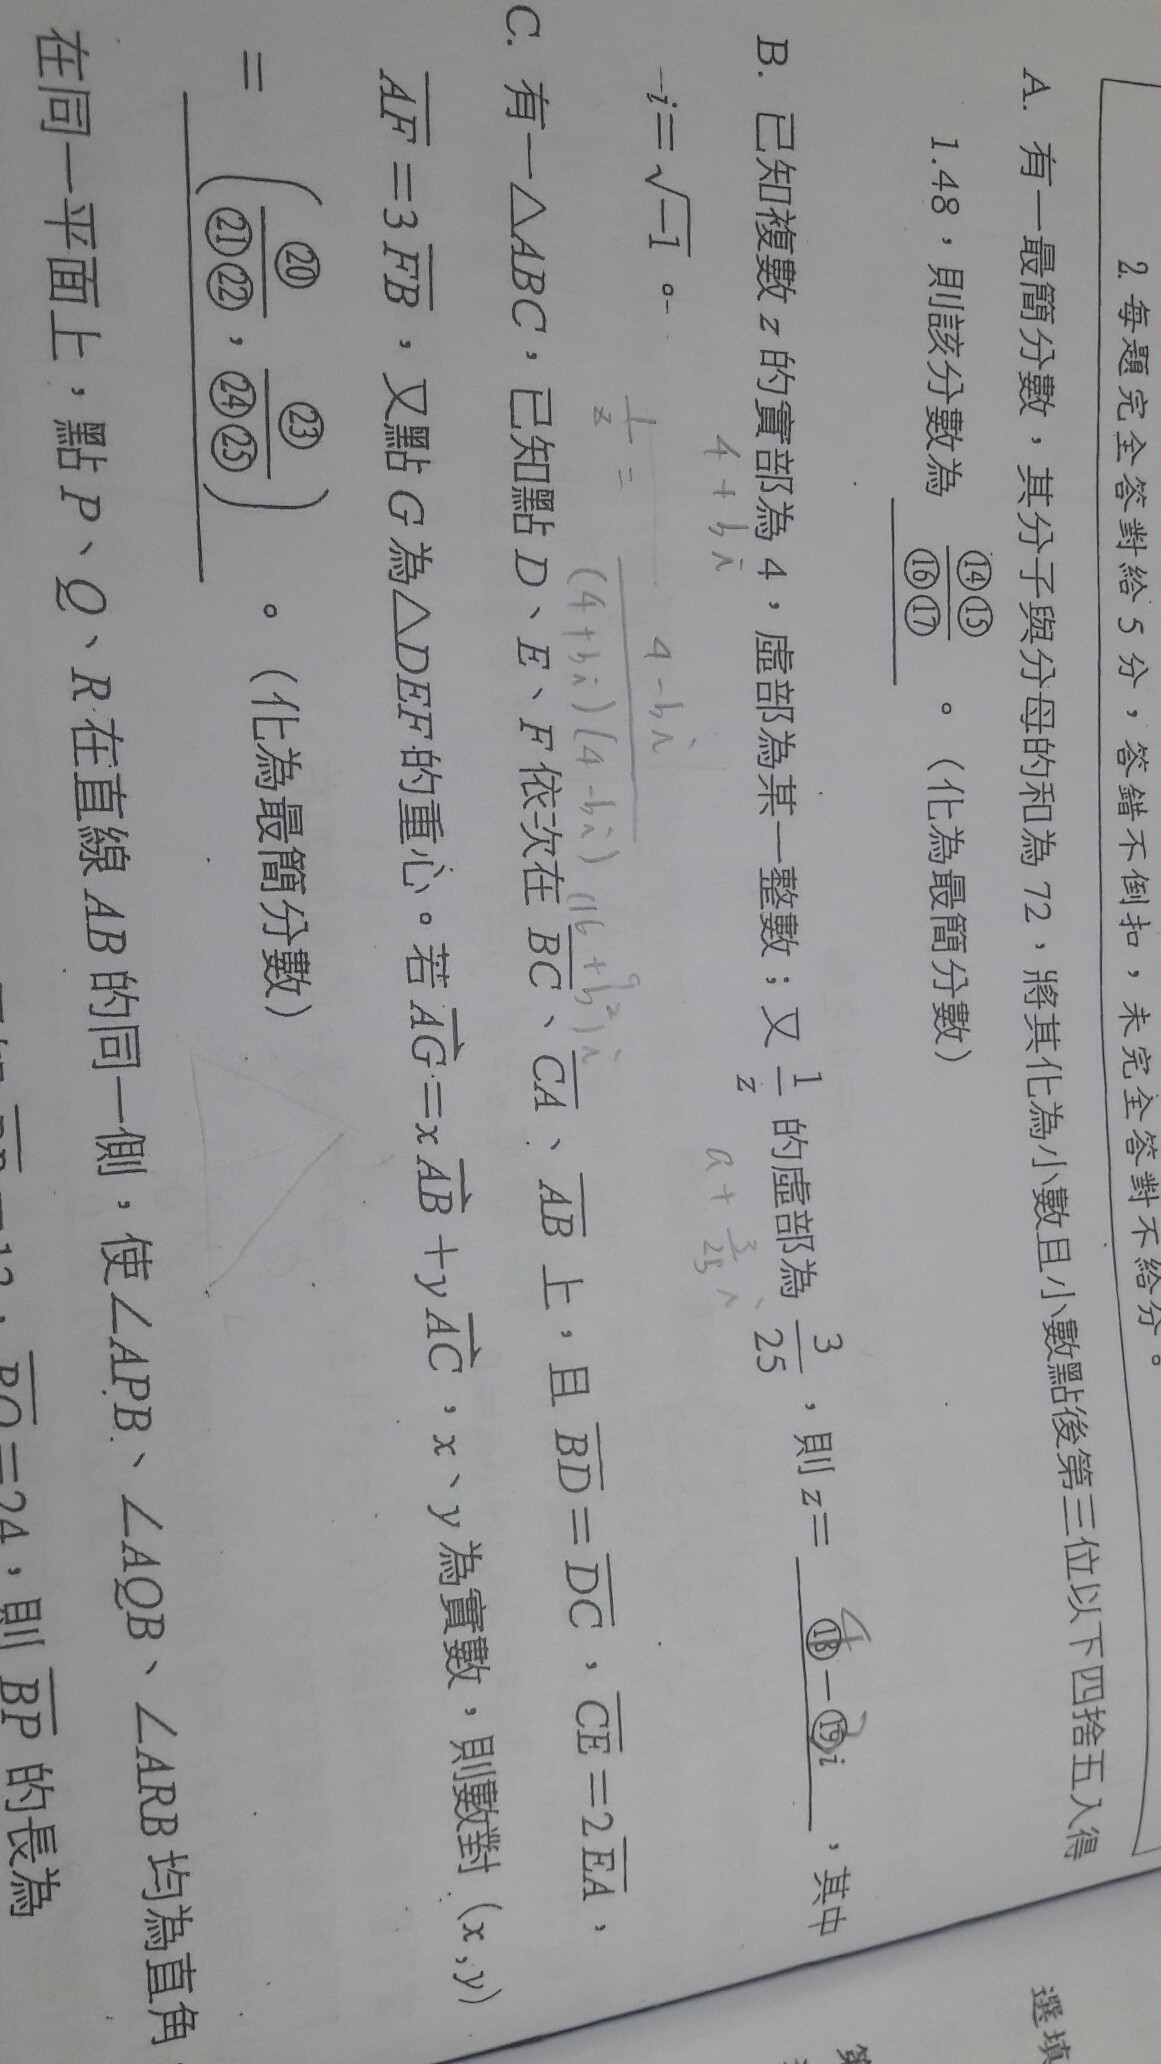 2. 每題完全答對給5分，答錯不倒扣，未完全答對不給分。
A. 有一最簡分數，其分子與分母的和為72，將其化為小數且小數點後第三位以下四捨五入得
1.48，則該分數為 ⑭⑮/⑯⑰ 。（化為最簡分數）
B. 已知複數 z 的實部為 4，虛部為某一整數；又 1/z 的虛部為 3/25，則 z = ⑱－⑲i ，其中
4 3
i = √-1 。
4 + bi
a + 3/25 i
1/z = 4 - bi / (4 + bi)(4 - bi)
C. 有一△ABC，已知點 D、E、F 依次在 BC、CA、AB 上，且 BD = DC，CE = 2EA，
AF = 3FB，又點 G 為△DEF的重心。若 AG = xAB + yAC，x、y 為實數，則數對 (x, y)
= (⑳/㉑㉒, ㉓/㉔㉕) 。（化為最簡分數）
在同一平面上，點 P、Q、R 在直線 AB 的同一側，使∠APB、∠AQB、∠ARB 均為直角
24，則 BP 的長為
選填
第